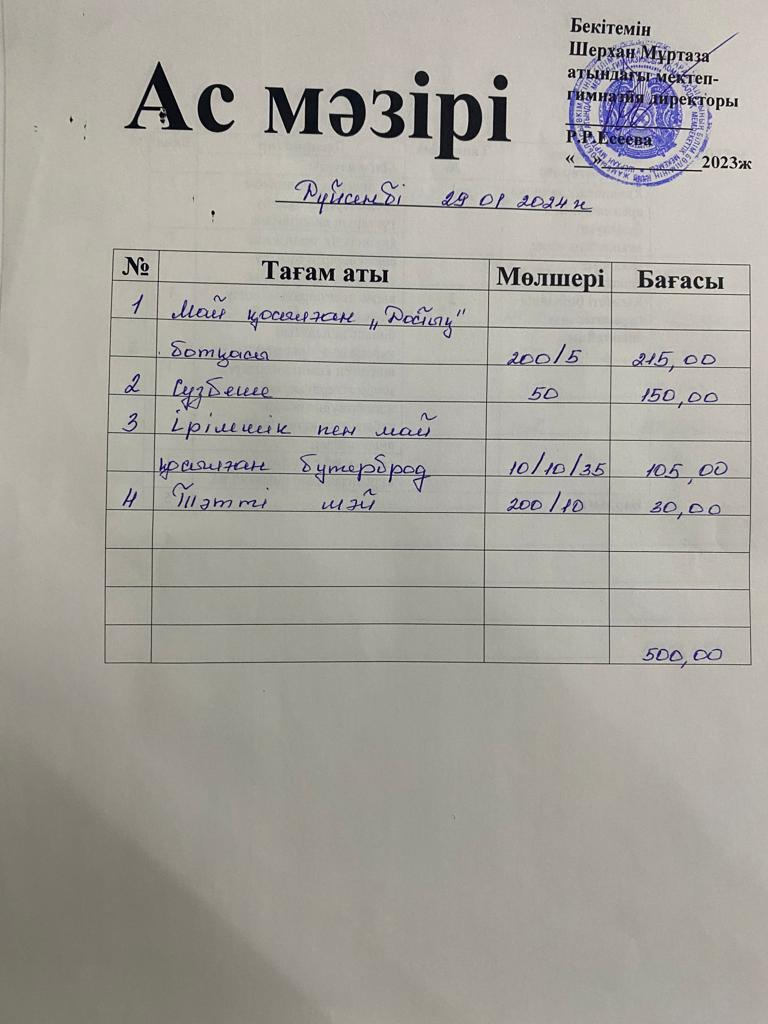 Бекітемін
Шерхан Мұртаза
атындағы мектеп-
гимназия директоры
Р.Р.Есеева
«___»____________2023ж
Ас мәзірі
Дүйсенбі 29 01 2024ж
№ Тағам аты Мөлшері Бағасы
1 Май қосылған „Достық"
ботқасы 200/5 215,00
2 Сүзбеше 50 150,00
3 Ірімшік пен май
қосылған бутерброд 10/10/35 105,00
4 Тәтті шәй 200/10 30,00
500,00